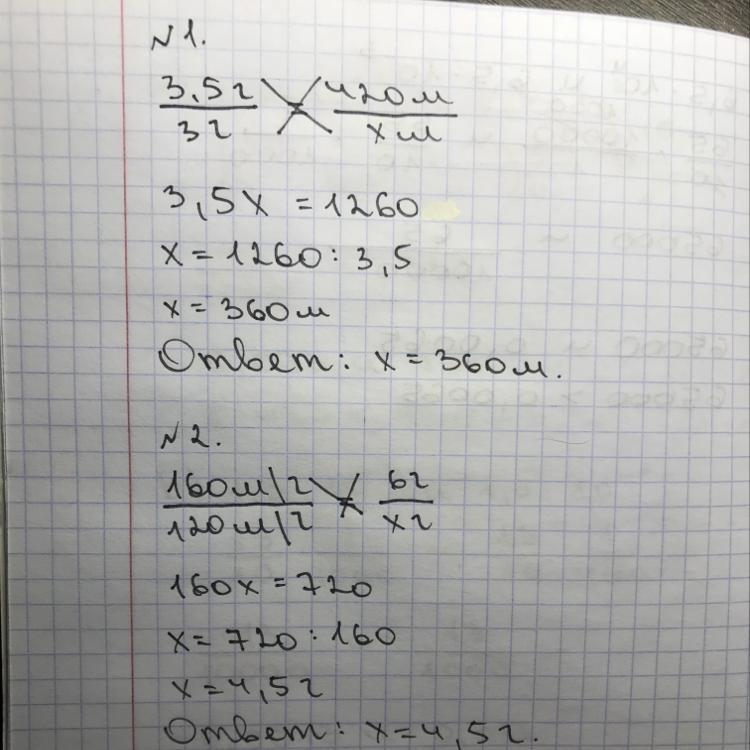 №1.
3,5г 420м
3г xм
3,5x = 1260
x = 1260 : 3,5
x = 360м
Ответ: x = 360м.
№2.
160м/г 6г
120м/г xг
160x = 720
x = 720 : 160
x = 4,5г
Ответ: x = 4,5г.